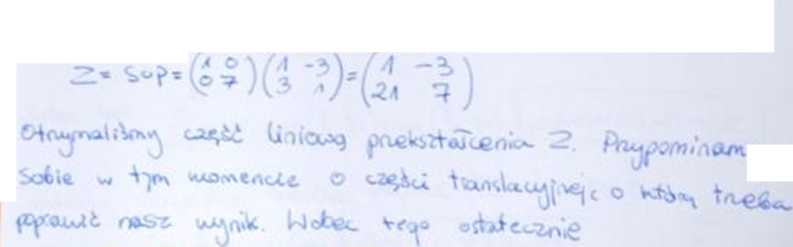 Z = S∘P = (1 0 0 7) (1 -3 3 1) = (1 -3 21 7)
Otrzymaliśmy część liniową przekształcenia Z. Przypominam
sobie w tym momencie o części translacyjnej, o którą trzeba
poprawić nasz wynik. Wobec tego ostatecznie